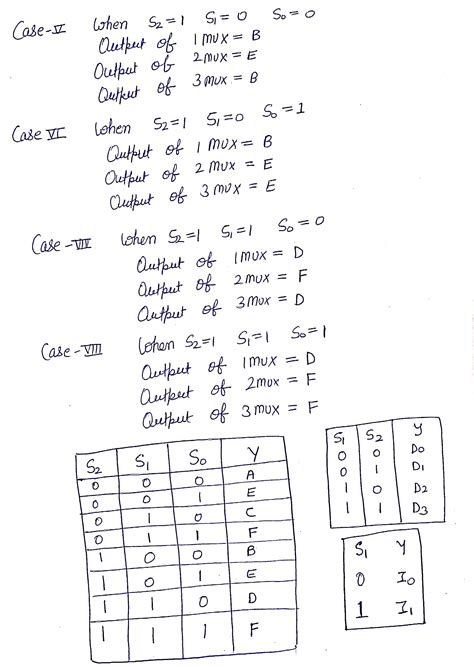 Case-V When S2=1 S1=0 S0=0
Output of 1 mux = B
Output of 2mux = E
Output of 3 mux = B
Case VI When S2=1 S1=0 S0=1
Output of 1 mux = B
Output of 2 mux = E
Output of 3 mux = E
Case-VII When S2=1 S1=1 S0=0
Output of 1mux = D
Output of 2mux = F
Output of 3mux = D
Case-VIII When S2=1 S1=1 S0=1
Output of 1mux = D
Output of 2mux = F
Output of 3mux = F
S2 S1 S0 Y
0 0 0 A
0 0 1 E
0 1 0 C
0 1 1 F
1 0 0 B
1 0 1 E
1 1 0 D
1 1 1 F
S1 S2 Y
0 0 D0
0 1 D1
1 0 D2
1 1 D3
S1 Y
0 I0
1 I1